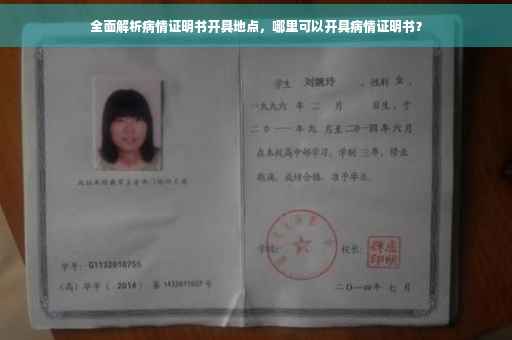 全面解析病情证明书开具地点，哪里可以开具病情证明书？
学生 刘婉玲 ，性别 女 ，
一九九六 年 二 月 日生，于
二〇一一 年 九 月至 二〇一四 年 六 月
在本校高中部学习，学制 三年，修业
期满，成绩合格，准予毕业。
学校：
校长：
学号：G1132010755
（高）毕字（ 2014 ）第 1432011027 号
二〇一四年 七 月